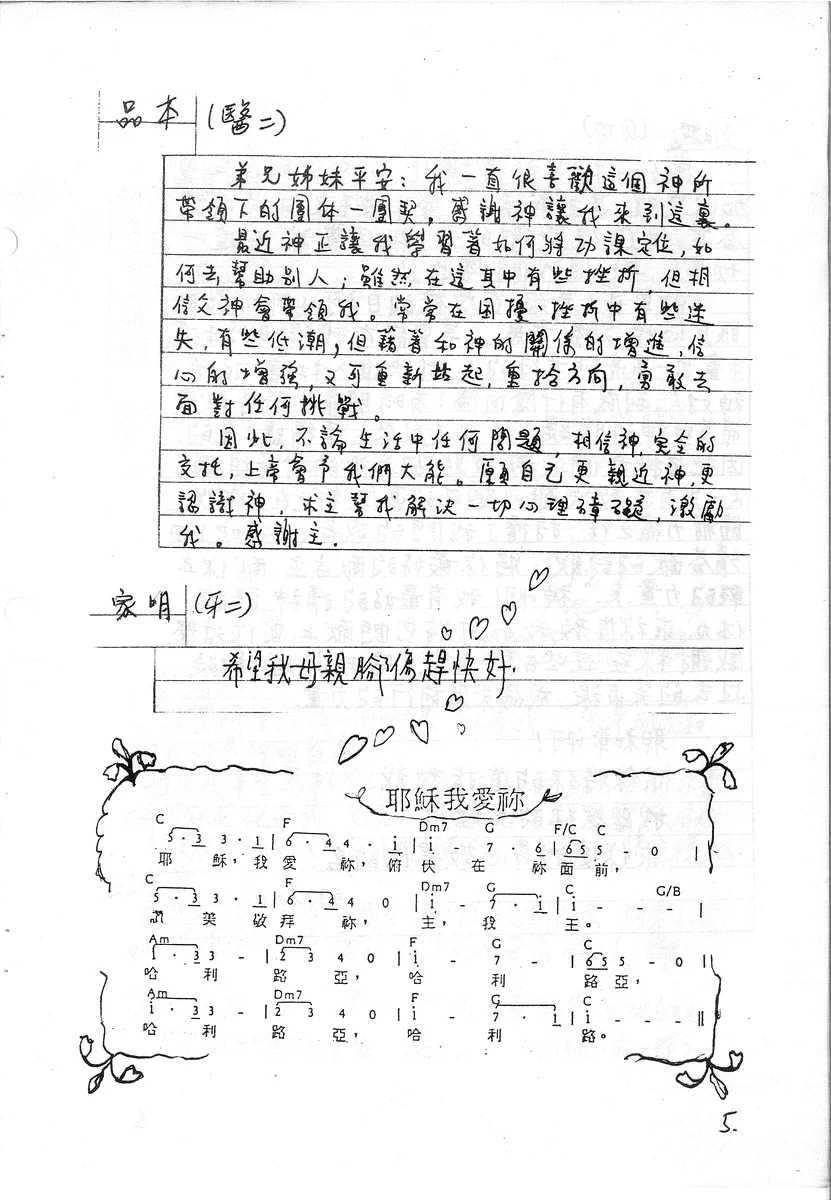 品本 (醫二)
弟兄姊妹平安：我一直很喜歡這個神所
帶領下的團体—團契。感謝神讓我來到這裏。
最近神正讓我學習著如何將功課定位，如
何去幫助別人；雖然在這其中有些挫折，但相
信父神會帶領我。常常在困擾、挫折中有些迷
失，有些低潮，但藉著和神的關係的增進，信
心的增強，又可重新站起，重拾方向，勇敢去
面對任何挑戰。
因此，不論生活中任何問題，相信神，完全的
交托，上帝會予我們大能。願自己更親近神，更
認識神，求主幫我解決一切心理障礙，激勵
我。感謝主.
家明 (牙二)
希望我母親腳傷趕快好.
耶穌我愛祢
C F Dm7 G F/C C
5 · 3 3 · 1 | 6 · 4 4 · i | i - 7 · 6 | 6 5 5 - 0 |
耶 穌，我 愛 祢，俯 伏 在 祢 面 前，
C F Dm7 G C G/B
5 · 3 3 · 1 | 6 · 4 4 0 | i - 7 · i | i - - - |
讚 美 敬 拜 祢， 主， 我 王。
Am Dm7 F G C
i · 3 3 - | 2 3 4 0 | i - 7 - | 6 5 5 - 0 |
哈 利 路 亞， 哈 利 路 亞，
Am Dm7 F G C
i · 3 3 - | 2 3 4 0 | i - 7 · i | i - - - ||
哈 利 路 亞， 哈 利 路。
5.